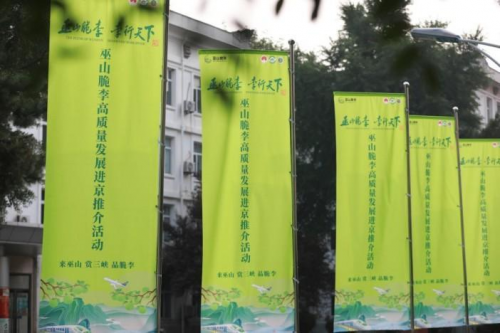 巫山脆李 李行天下
巫山脆李高质量发展进京推介活动
来巫山 赏三峡 品脆李
巫山脆李 李行天下
巫山脆李高质量发展进京推介活动
来巫山 赏三峡 品脆李
巫山脆李 李行天下
巫山脆李高质量发展进京推介活动
巫山脆李高质量发展进京推介活动
巫山脆李高质量发展进京推介活动